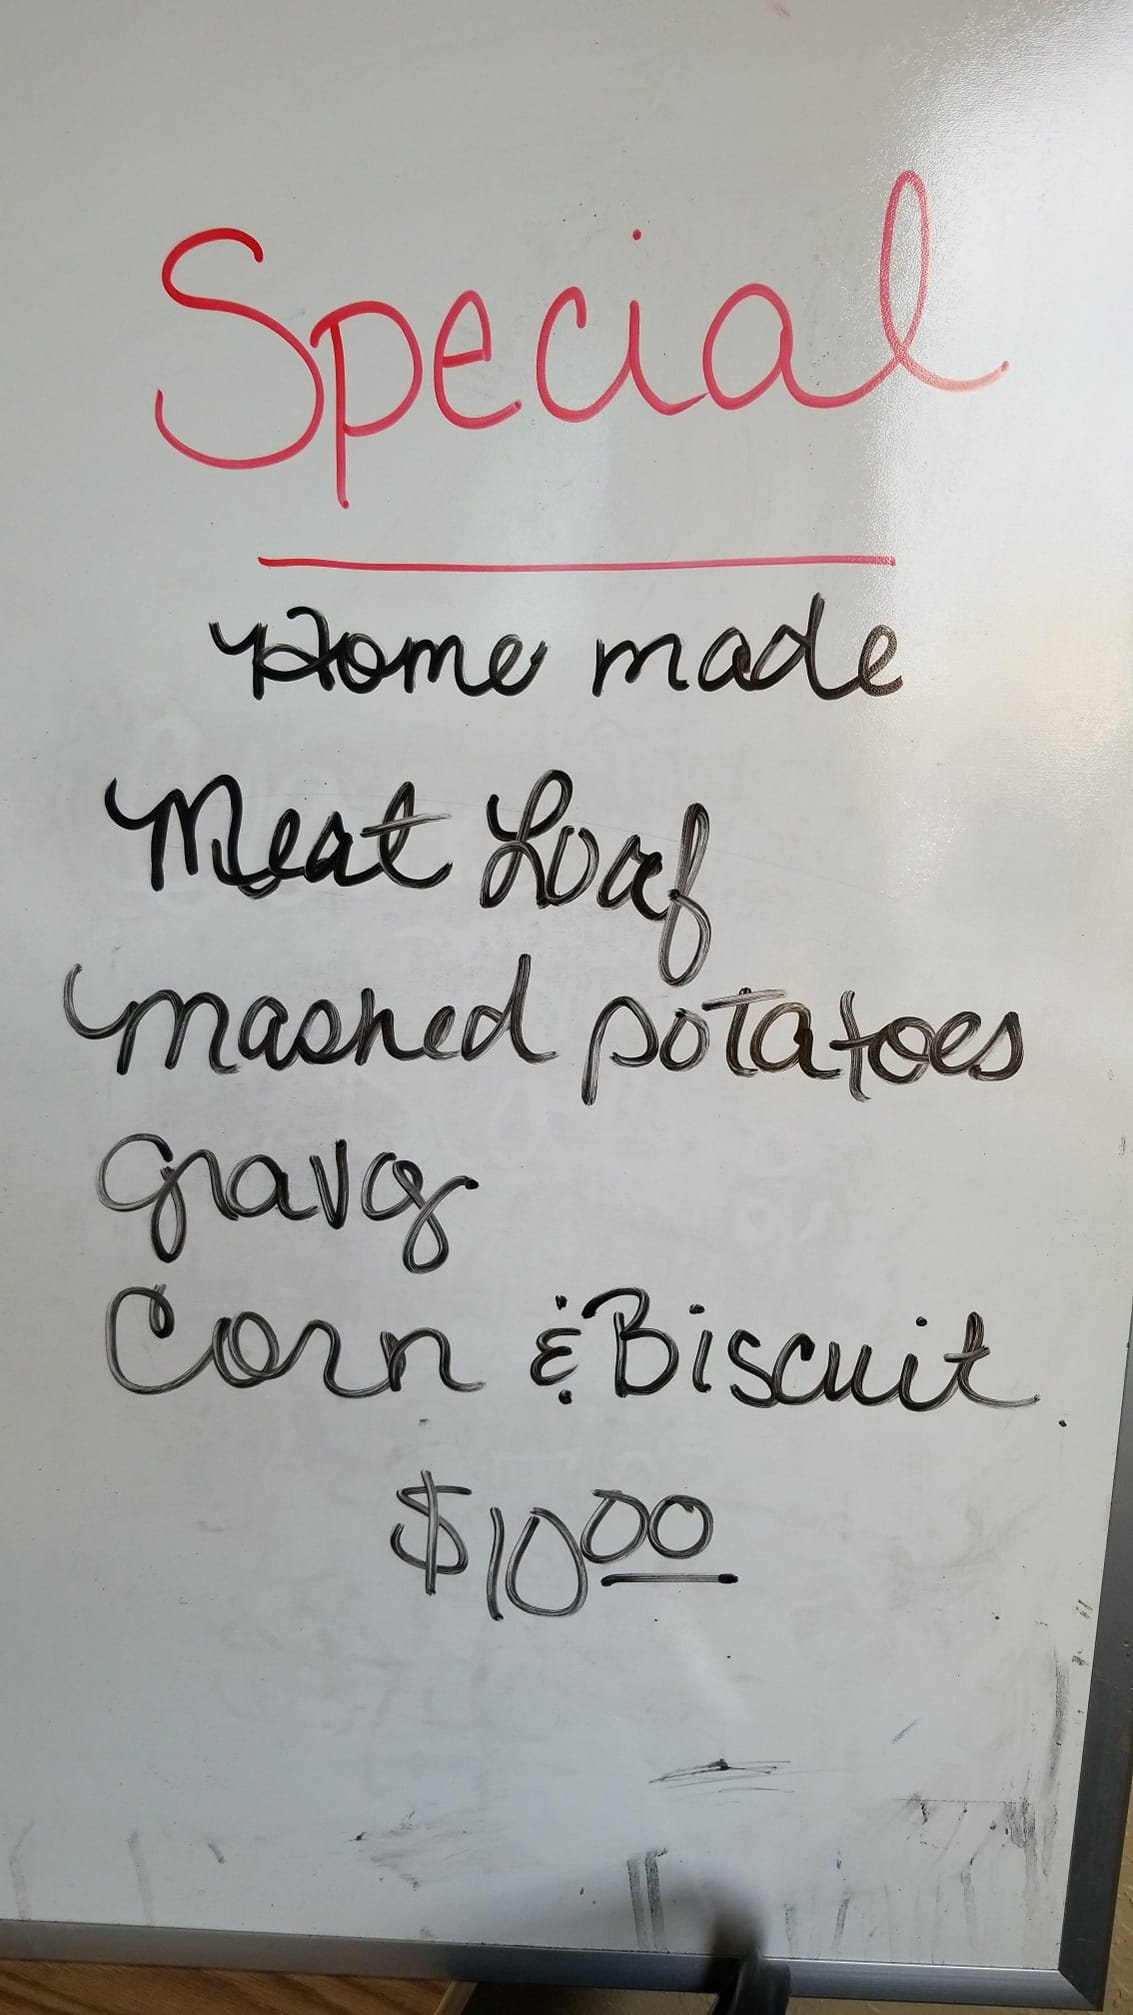 Special
Home made
Meat Loaf
mashed potatoes
gravy
Corn & Biscuit.
$10.00